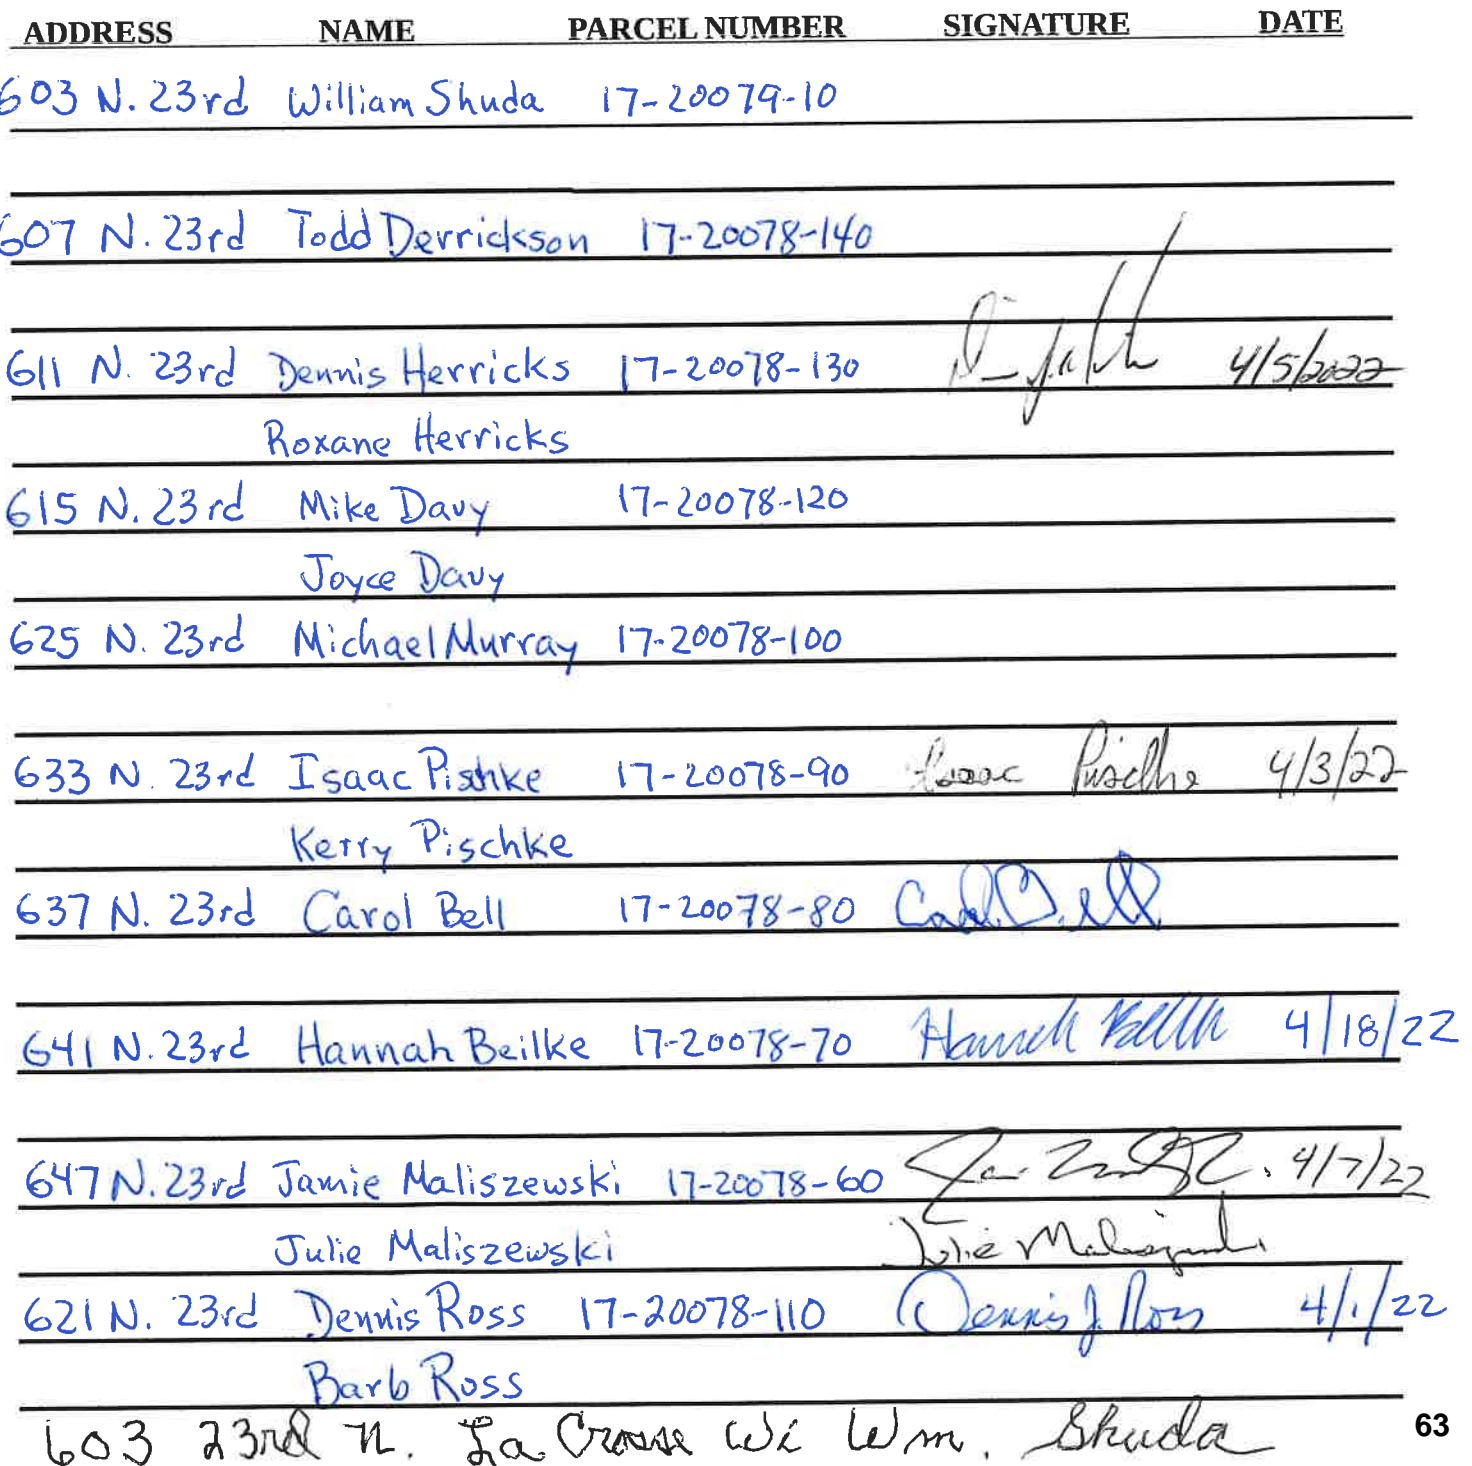 ADDRESS NAME PARCEL NUMBER SIGNATURE DATE
603 N. 23rd William Shuda 17-20079-10
607 N. 23rd Todd Derrickson 17-20078-140
611 N. 23rd Dennis Herricks 17-20078-130 4/5/2022
Roxane Herricks
615 N. 23rd Mike Davy 17-20078-120
Joyce Davy
625 N. 23rd Michael Murray 17-20078-100
633 N. 23rd Isaac Pishke 17-20078-90 Isaac Pischke 4/3/22
Kerry Pischke
637 N. 23rd Carol Bell 17-20078-80 Carol Bell
641 N. 23rd Hannah Beilke 17-20078-70 Hannah Beilke 4/18/22
647 N. 23rd Jamie Maliszewski 17-20078-60 4/7/22
Julie Maliszewski Julie Maliszewski
621 N. 23rd Dennis Ross 17-20078-110 Dennis J. Ross 4/1/22
Barb Ross
603 23rd N. La Crosse Wi Wm. Shuda 63